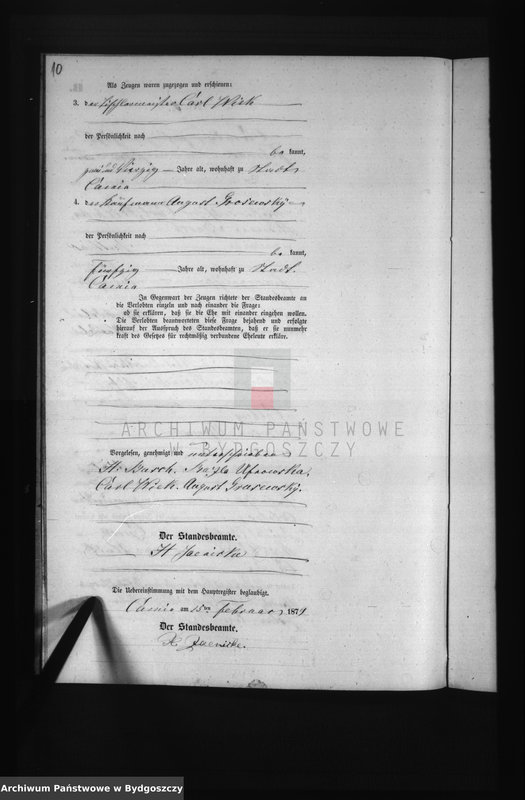 10
Als Zeugen waren zugezogen und erschienen:
3. der Tischlermeister Carl Wiek
der Persönlichkeit nach
be kannt,
zwei und vierzig Jahre alt, wohnhaft zu Stadt
4. der Kaufmann August Grosewsky
der Persönlichkeit nach
be kannt,
fünfzig Jahre alt, wohnhaft zu Stadt
In Gegenwart der Zeugen richtete der Standesbeamte an
die Verlobten einzeln und nach einander die Frage:
ob sie erklären, daß sie die Ehe mit einander eingehen wollen.
Die Verlobten beantworteten diese Frage bejahend und erfolgte
hierauf der Ausspruch des Standesbeamten, daß er sie nunmehr
kraft des Gesetzes für rechtmäßig verbundene Eheleute erkläre.
ARCHIWUM PAŃSTWOWE
W BYDGOSZCZY
Vorgelesen, genehmigt und unterschrieben
Carl Wiek. August Grosewsky.
Der Standesbeamte.
Die Uebereinstimmung mit dem Hauptregister beglaubigt.
am 15ten Februar 1879
Der Standesbeamte.
Archiwum Państwowe w Bydgoszczy